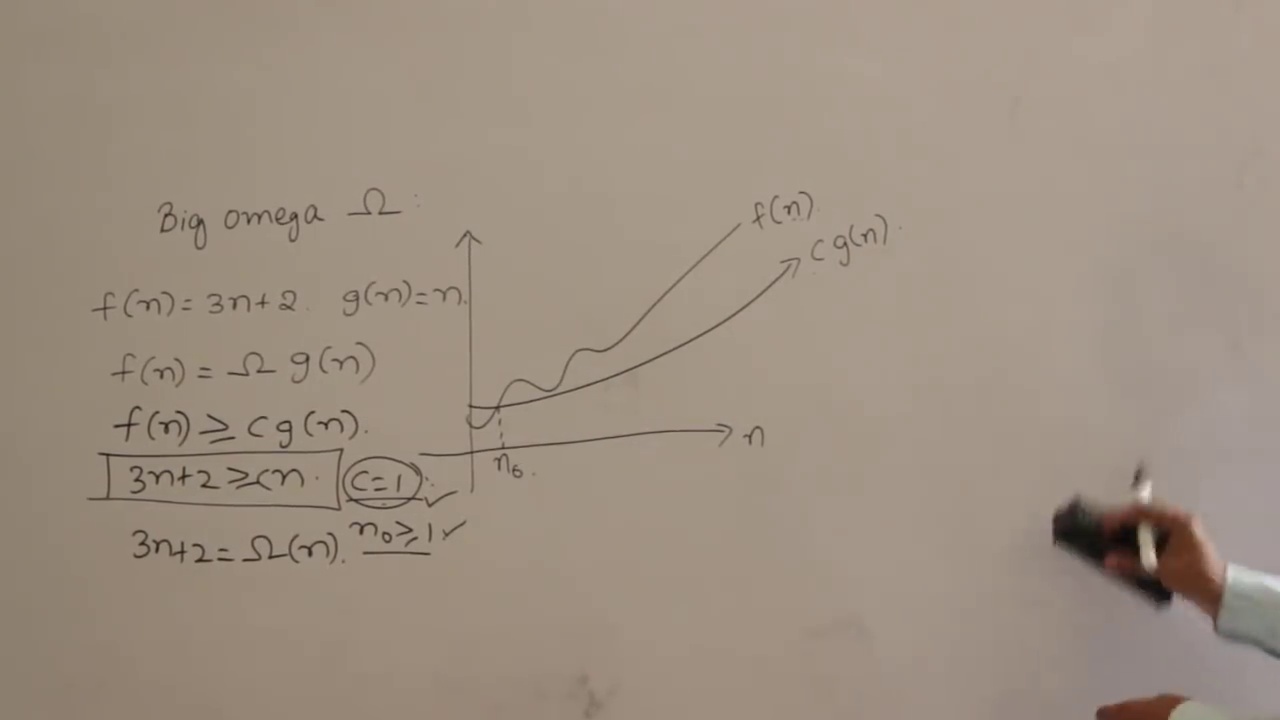 Big omega Ω :
f(n) = 3n+2. g(n)=n.
f(n) = Ω g(n)
f(n) ≥ c g(n).
3n+2 ≥ cn. c=1 ✓
3n+2 = Ω(n). n₀ ≥ 1 ✓
f(n).
c g(n).
n
n₀.